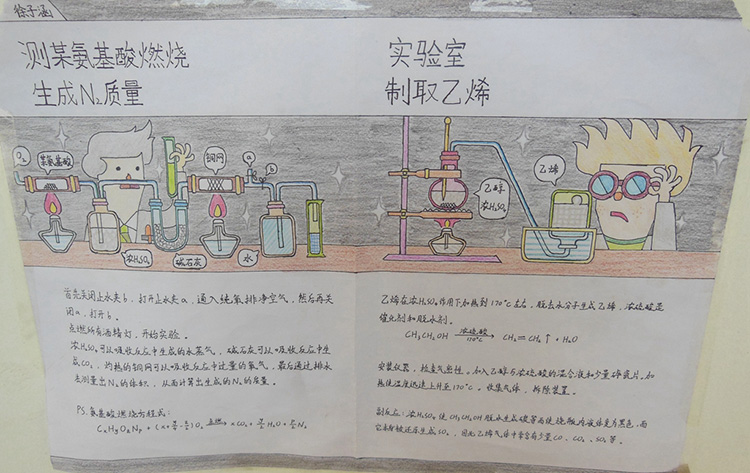 徐子涵
测某氨基酸燃烧
生成N₂质量
实验室
制取乙烯
O₂
某氨基酸
铜网
a
b
浓H₂SO₄
碱石灰
水
乙醇
浓H₂SO₄
乙烯
首先关闭止水夹b，打开止水夹a，通入纯氧排净空气，然后再关
闭a，打开b。
点燃所有酒精灯，开始实验。
浓H₂SO₄可以吸收反应中生成的水蒸气，碱石灰可以吸收反应中生
成CO₂，灼热的铜网可以吸收反应中过量的氧气，最后通过排水
法测量出N₂的体积，从而计算出生成的N₂的质量。
PS.氨基酸燃烧方程式：
CxHyOzNp + (x+y/4-z/2)O₂ 点燃→ xCO₂ + y/2H₂O + p/2N₂
乙醇在浓H₂SO₄作用下加热到170℃左右，脱去水分子生成乙烯，浓硫酸是
催化剂和脱水剂。
CH₃CH₂OH 浓硫酸 170℃→ CH₂=CH₂↑ + H₂O
安装仪器，检查气密性。加入乙醇与浓硫酸的混合液和少量碎瓷片。加
热使温度迅速上升至170℃。收集气体，拆除装置。
副反应：浓H₂SO₄使CH₃CH₂OH脱水生成碳等而使烧瓶内液体变为黑色，而
它本身被还原生成SO₂，因此乙烯气体中常含有少量CO、CO₂、SO₂等。